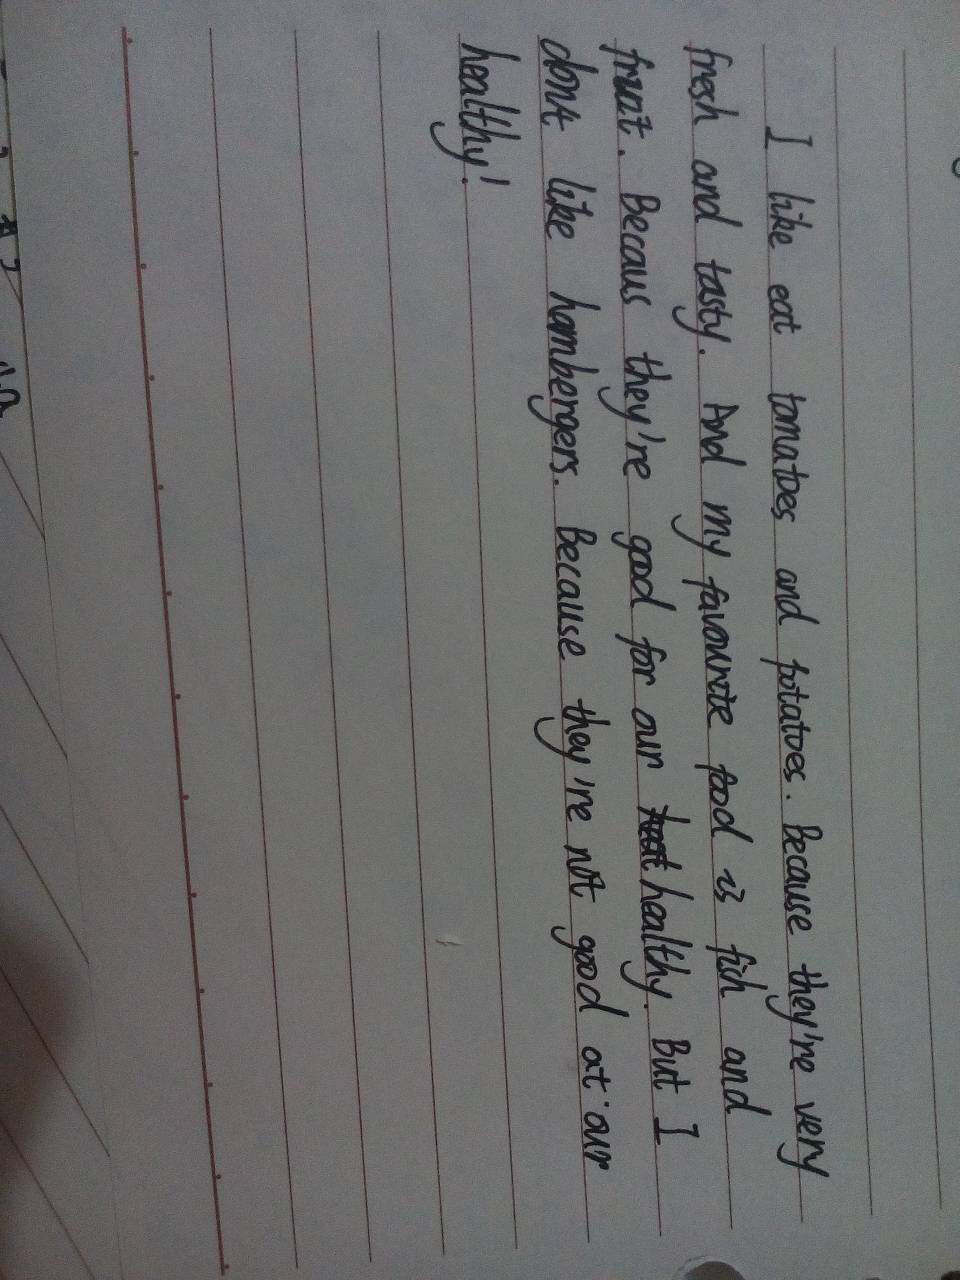 I like eat tomatoes and potatoes. Because they're very
fresh and tasty. And my favourite food is fish and
fruat. Becaus they're good for our healthy. But I
dont like hambergers. Because they're not good at our
healthy!